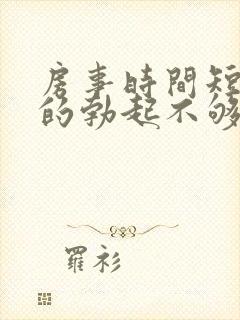 房事時間短
的勃起不够
羅衫